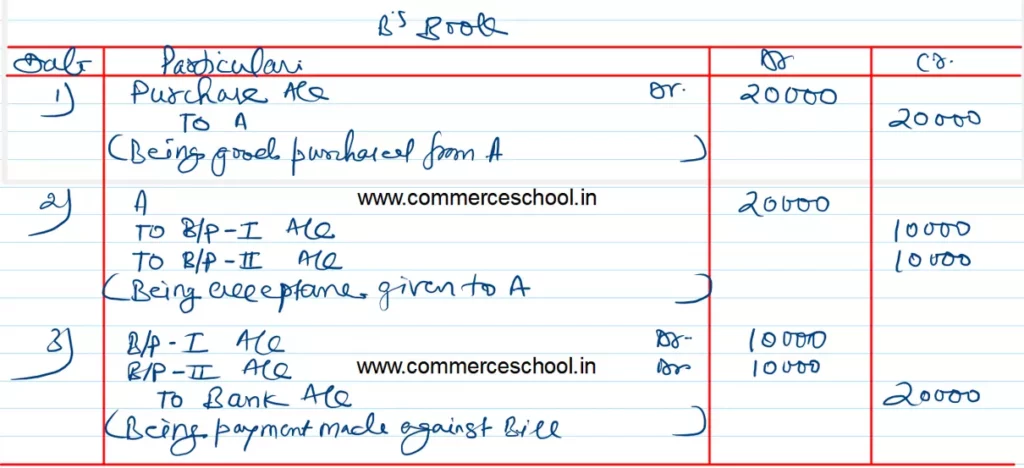 B's Book
Date Particulars Dr Cr.
1) Purchase A/c Dr. 20000
To A 20000
(Being goods purchased from A)
2) A www.commerceschool.in 20000
To B/P-I A/c 10000
To B/P-II A/c 10000
(Being acceptance given to A)
3) B/P-I A/c Dr- 10000
B/P-II A/c www.commerceschool.in Dr 10000
To Bank A/c 20000
(Being payment made against Bill)